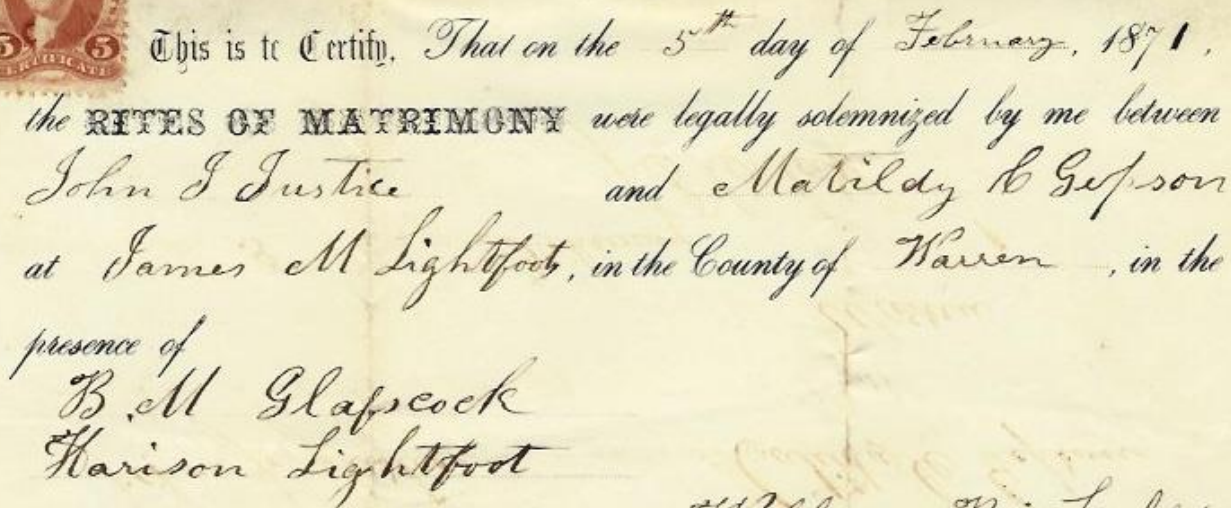 5 5
CERTIFICATE
This is to Certify, That on the 5th day of February, 1871,
the RITES OF MATRIMONY were legally solemnized by me between
John J Justice and Matildy C Gesson
at James M Lightfoots, in the County of Warren, in the
presence of
B. M Glasscock
Harison Lightfoot